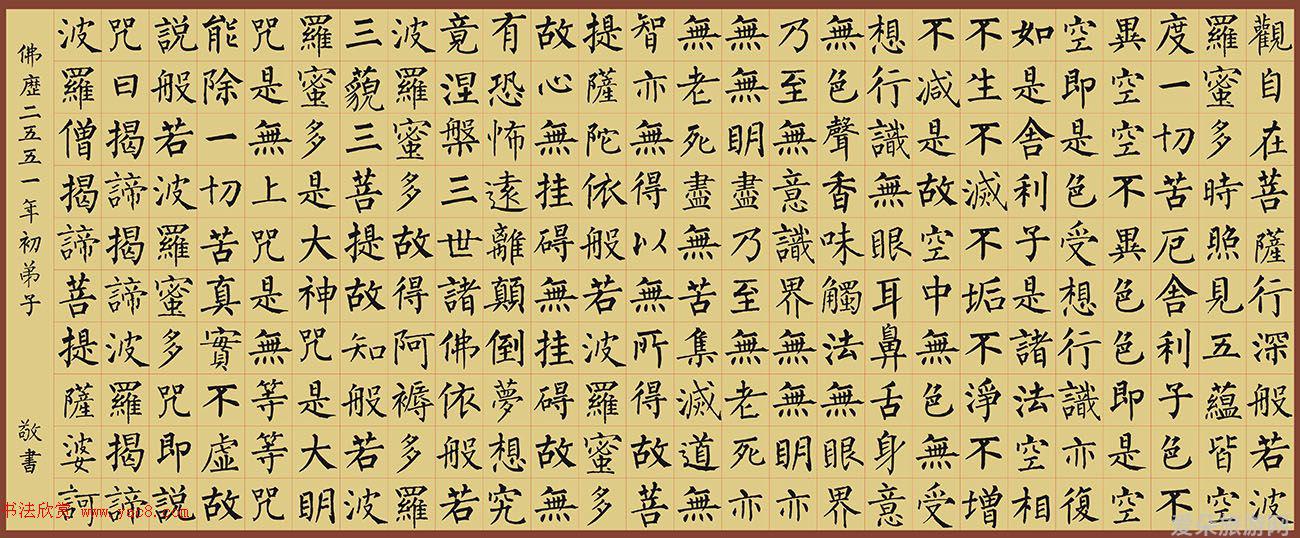 觀自在菩薩行深般若波
羅蜜多時照見五蘊皆空
度一切苦厄舍利子色不
異空空不異色色即是空
空即是色受想行識亦復
如是舍利子是諸法空相
不生不滅不垢不淨不增
不減是故空中無色無受
想行識無眼耳鼻舌身意
無色聲香味觸法無眼界
乃至無意識界無無明亦
無無明盡乃至無老死亦
無老死盡無苦集滅道無
智亦無得以無所得故菩
提薩陀依般若波羅蜜多
故心無挂碍無挂碍故無
有恐怖遠離顛倒夢想究
竟涅槃三世諸佛依般若
波羅蜜多故得阿褥多羅
三藐三菩提故知般若波
羅蜜多是大神咒是大明
咒是無上咒是無等等咒
能除一切苦真實不虛故
說般若波羅蜜多咒即說
咒曰揭諦揭諦波羅揭諦
波羅僧揭諦菩提薩婆訶
佛歷二五五一年初弟子 敬書
书法欣赏 www.ysc8.com